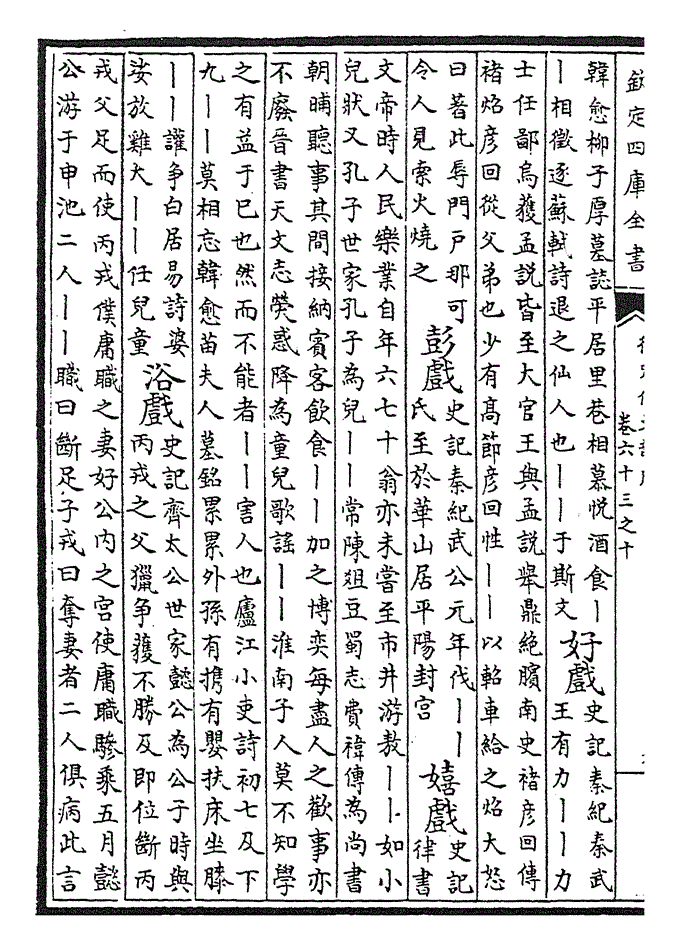 欽定四庫全書
卷六十三之十
韓愈柳子厚墓誌平居里巷相慕悦酒食丨
丨相徵逐蘇軾詩退之仙人也丨丨于斯文
好戲
史記秦紀秦武
王有力丨丨力
士任鄙烏獲孟説皆至大官王與孟説舉鼎絶臏南史褚彦回傳
褚炤彦回從父弟也少有高節彦回性丨丨以軺車給之炤大怒
曰著此辱門戸那可
令人見索火燒之
彭戲
史記秦紀武公元年伐丨丨
氏至於華山居平陽封宫
嬉戲
史記
律書
文帝時人民樂業自年六七十翁亦未嘗至市井游敖丨丨如小
兒狀又孔子世家孔子為兒丨丨常陳俎豆蜀志費禕傳為尚書
朝晡聽事其間接納賓客飲食丨丨加之博奕每盡人之歡事亦
不廢晉書天文志熒惑降為童兒歌謡丨丨淮南子人莫不知學
之有益于已也然而不能者丨丨害人也廬江小吏詩初七及下
九丨丨莫相忘韓愈苗夫人墓銘累累外孫有攜有嬰扶床坐膝
丨丨讙争白居易詩婆
娑放雞犬丨丨任兒童
浴戲
史記齊太公世家懿公為公子時與
丙戎之父獵争獲不勝及即位斷丙
戎父足而使丙戎僕庸職之妻好公内之宫使庸職驂乘五月懿
公游于申池二人丨丨職曰斷足子戎曰奪妻者二人俱病此言